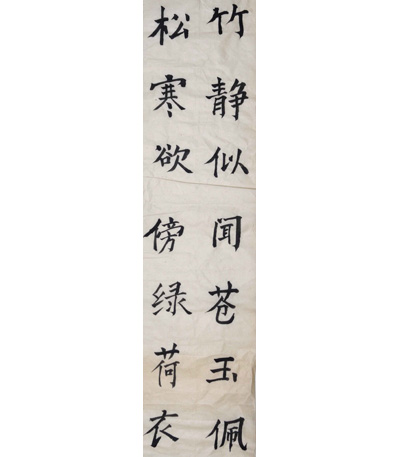 竹静似闻苍玉佩
松寒欲傍绿荷衣